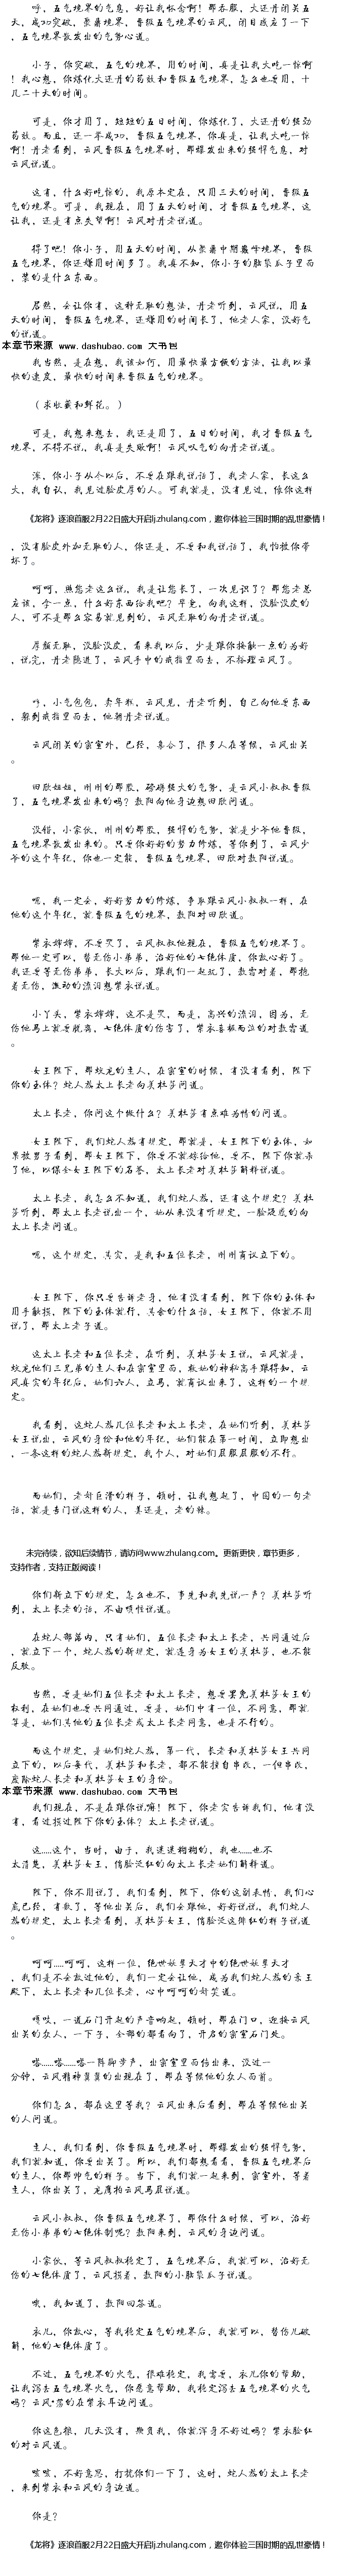 呼,五气境界的气息,好让我怀念啊!那吞服,大还丹闭关五
天,成功突破,聚着境界,晋级五气境界的云风,闭目感应了一下
,五气境界散发出的气势心道。
小子,你突破,五气的境界,用的时间,真是让我大吃一惊啊
!我心想,你炼化大还丹的药效和晋级五气境界,怎么也要用,十
几二十天的时间。
可是,你才用了,短短的五日时间,你炼化了,大还丹的强劲
药效。而且,还一举成功,晋级五气境界,你真是,让我大吃一惊
啊!丹老看到,云风晋级五气境界时,那爆发出来的强悍气息,对
云风说道。
这有,什么好吃惊的,我原本定在,只用三天的时间,晋级五
气的境界。可是,我现在,用了五天的时间,才晋级五气境界,这
让我,还是有点失望啊!云风对丹老说道。
得了吧!你小子,用五天的时间,从聚着中期巅峰境界,晋级
五气境界,你还嫌用时间多了。我真不知,你小子的脑袋瓜子里面
,装的是什么东西。
居然,会让你有,这种无耻的想法,丹老听到,云风说,用五
天的时间,晋级五气境界,还嫌用的时间长了,他老人家,没好气
的说道。
本章节来源 www.dashubao.com 大书包
我当然,是在想,我该如何,用最快最直慨的方法,让我以最
快的速度,最快的时间来晋级五气的境界。
(求收藏和鲜花。)
可是,我想来想去,我还是用了,五日的时间,我才晋级五气
境界,不得不说,我真是失败啊!云风叹气的向丹老说道。
滚,你小子从今以后,不要在跟我说话了,我老人家,长这么
大,我自认,我见过脸皮厚的人。可我就是,没有见过,像你这样
《龙将》逐浪首服2月22日盛大开启lj.zhulang.com,邀你体验三国时期的乱世豪情!
,没有脸皮外加无耻的人,你还是,不要和我说话了,我怕被你带
坏了。
呵呵,照您老这么说,我是让您长了,一次见识了?那您老总
应该,拿一点,什么好东西给我吧?毕竟,向我这样,没脸没皮的
人,可不是那么容易就见到的,云风无耻的向丹老说道。
厚颜无耻,没脸没皮,看来我以后,少是跟你接触一点的为好
,说完,丹老隐进了,云风手中的戒指里面去,不搭理云风了。
哼,小气包包,卖年糕,云风见,丹老听到,自己向他要东西
,躲到戒指里面去,他朝丹老说道。
云风闭关的密室外,已经,集合了,很多人在等候,云风出关
。
田欣姐姐,刚刚的那股,磅礴强大的气势,是云风小叔叔晋级
了,五气境界发出来的吗?敖阳向他身边想田欣问道。
没错,小家伙,刚刚的那股,强悍的气势,就是少爷他晋级,
五气境界散发出来的。只要你好好的努力修炼,等你到了,云风少
爷的这个年纪,你也一定能,晋级五气境界,田欣对敖阳说道。
嗯,我一定会,好好努力的修炼,争取跟云风小叔叔一样,在
他的这个年纪,就晋级五气的境界,敖阳对田欣道。
紫衣婶婶,不要哭了,云风叔叔他现在,晋级五气的境界了。
那他一定可以,替无伤小弟弟,治好他的七绝体质,你放心好了。
我还要等无伤弟弟,长大以后,跟我们一起玩了,敖雷对着,那抱
着无伤,激动的流泪想紫衣说道。
小丫头,紫衣婶婶,这不是哭,而是,高兴的流泪,因为,无
伤他马上就要脱离,七绝体质的伤害了,紫衣喜极而泣的对敖雷道
。
女王陛下,那蛟龙的主人,在密室的时候,有没有看到,陛下
你的玉体?蛇人族太上长老向美杜莎问道。
太上长老,你问这个做什么?美杜莎有点难为情的问道。
女王陛下,我们蛇人族有规定,那就是,女王陛下的玉体,如
果被男子看到,那女王陛下,你要不就嫁给他,要不,陛下你就杀
了他,以保全女王陛下的名誉,太上长老对美杜莎解释说道。
太上长老,我怎么不知道,我们蛇人族,还有这个规定?美杜
莎听到,那太上长老说出一个,她从来没有听规定,一脸疑惑的向
太上长老问道。
嗯,这个规定,其实,是我和五位长老,刚刚商议立下的。
女王陛下,你只要告诉老身,他有没有看到,陛下你的玉体和
用手触摸,陛下的玉体就行,其余的什么话,女王陛下,你就不用
说了,那太上老子道。
这太上长老和五位长老,在听到,美杜莎女王说,云风就是,
蛟龙他们三兄弟的主人和在密室里面,救她的神秘高手跟得知,云
风真实的年纪后,她们六人,立马,就商议出来了,这样的一个规
定。
我看到,这蛇人族几位长老和太上长老,在她们听到,美杜莎
女王说出,云风的身份和他的年纪,她们能在第一时间,立即想出
,一条这样的蛇人族新规定,我个人,对她们屈服屈服的不行。
而她们,老奸巨滑的样子,顿时,让我想起了,中国的一句老
话,就是专门说这样的人,姜还是,老的辣。
未完待续,欲知后续情节,请访问www.zhulang.com。更新更快,章节更多,
支持作者,支持正版阅读!
你们新立下的规定,怎么也不,事先和我先说一声?美杜莎听
到,太上长老的话,不由愤性说道。
在蛇人部落内,只有她们,五位长老和太上长老,共同通过后
,就立下一个,蛇人族的新规定,就连身为女王的美杜莎,也不能
反驳。
当然,要是她们五位长老和太上长老,想要罢免美杜莎女王的
权利,在她们也要共同通过,要是,她们中有一位,不同意,那就
算是,她们其他的五位长老或太上长老同意,也是不行的。
而这个规定,是她们蛇人族,第一代,长老和美杜莎女王共同
立下的,以后每代,美杜莎和长老,都不能擅自串改,一但串改,
废除蛇人长老和美杜莎女王的身份。
本章节来源 www.dashubao.com 大书包
我们现在,不是在跟你说嘛!陛下,你老实告诉我们,他有没
有,看过摸过陛下你的玉体?太上长老道。
这……这个,当时,由于,我迷迷糊糊的,我也……也不
太清楚,美杜莎女王,俏脸泛红的向太上长老她们解释道。
陛下,你不用说了,我们看到,陛下,你的这副表情,我们心
底已经,有数了,等他出关后,我们会跟他,好好说说,我们蛇人
族的规定,太上长老看到,美杜莎女王,俏脸泛这俾红的样子说道
。
呵呵……呵呵,这样一位,绝世妖孽天才中的绝世妖孽天才
,我们是不会放过他的,我们一定会让他,成为我们蛇人族的亲王
殿下,太上长老和几位长老,心中呵呵的奸笑道。
嘎吱,一道石门开起的声音响起,顿时,那在门口,迎接云风
出关的众人,一下子,全部的都看向了,开启的密室石门处。
嗒……嗒……嗒一阵脚步声,出密室里面传出来,没过一
分钟,云风精神奕奕的出现在了,那在等候他的众人面前。
你们怎么,都在这里等我?云风出来后看到,那在等候他出关
的人问道。
主人,我们看到,你晋级五气境界时,那爆发出的强悍气势,
我们就知道,你要出关了。所以,我们都想看看,晋级五气境界后
的主人,你那帅气的样子。当下,我们就一起来到,密室外,等着
主人,你出关了,龙鹰拍云风马屁说道。
云风小叔叔,你晋级五气境界了,那你什么时候,可以,治好
无伤小弟弟的七绝体制呢?敖阳来到,云风的身边问道。
小家伙,等云风叔叔稳定了,五气境界后,我就可以,治好无
伤的七绝体质了,云风摸着,敖阳的小脑袋瓜子说道。
哦,我知道了,敖阳回答道。
衣儿,你放心,等我稳定五气的境界后,我就可以,替伤儿破
解,他的七绝体质了。
不过,五气境界的火气,很难稳定,我需要,衣儿你的帮助,
让我泻去五气境界火气,你愿意帮助,我稳定泻去五气境界的火气
吗?云风*荡的在紫衣耳边问道。
你这色狼,几天没有,欺负我,你就浑身不好过吗?紫衣脸红
的对云风道。
咳咳,不好意思,打扰你们一下了,这时,蛇人族的太上长老
,来到紫衣和云风的身边道。
你是?
《龙将》逐浪首服2月22日盛大开启lj.zhulang.com,邀你体验三国时期的乱世豪情!